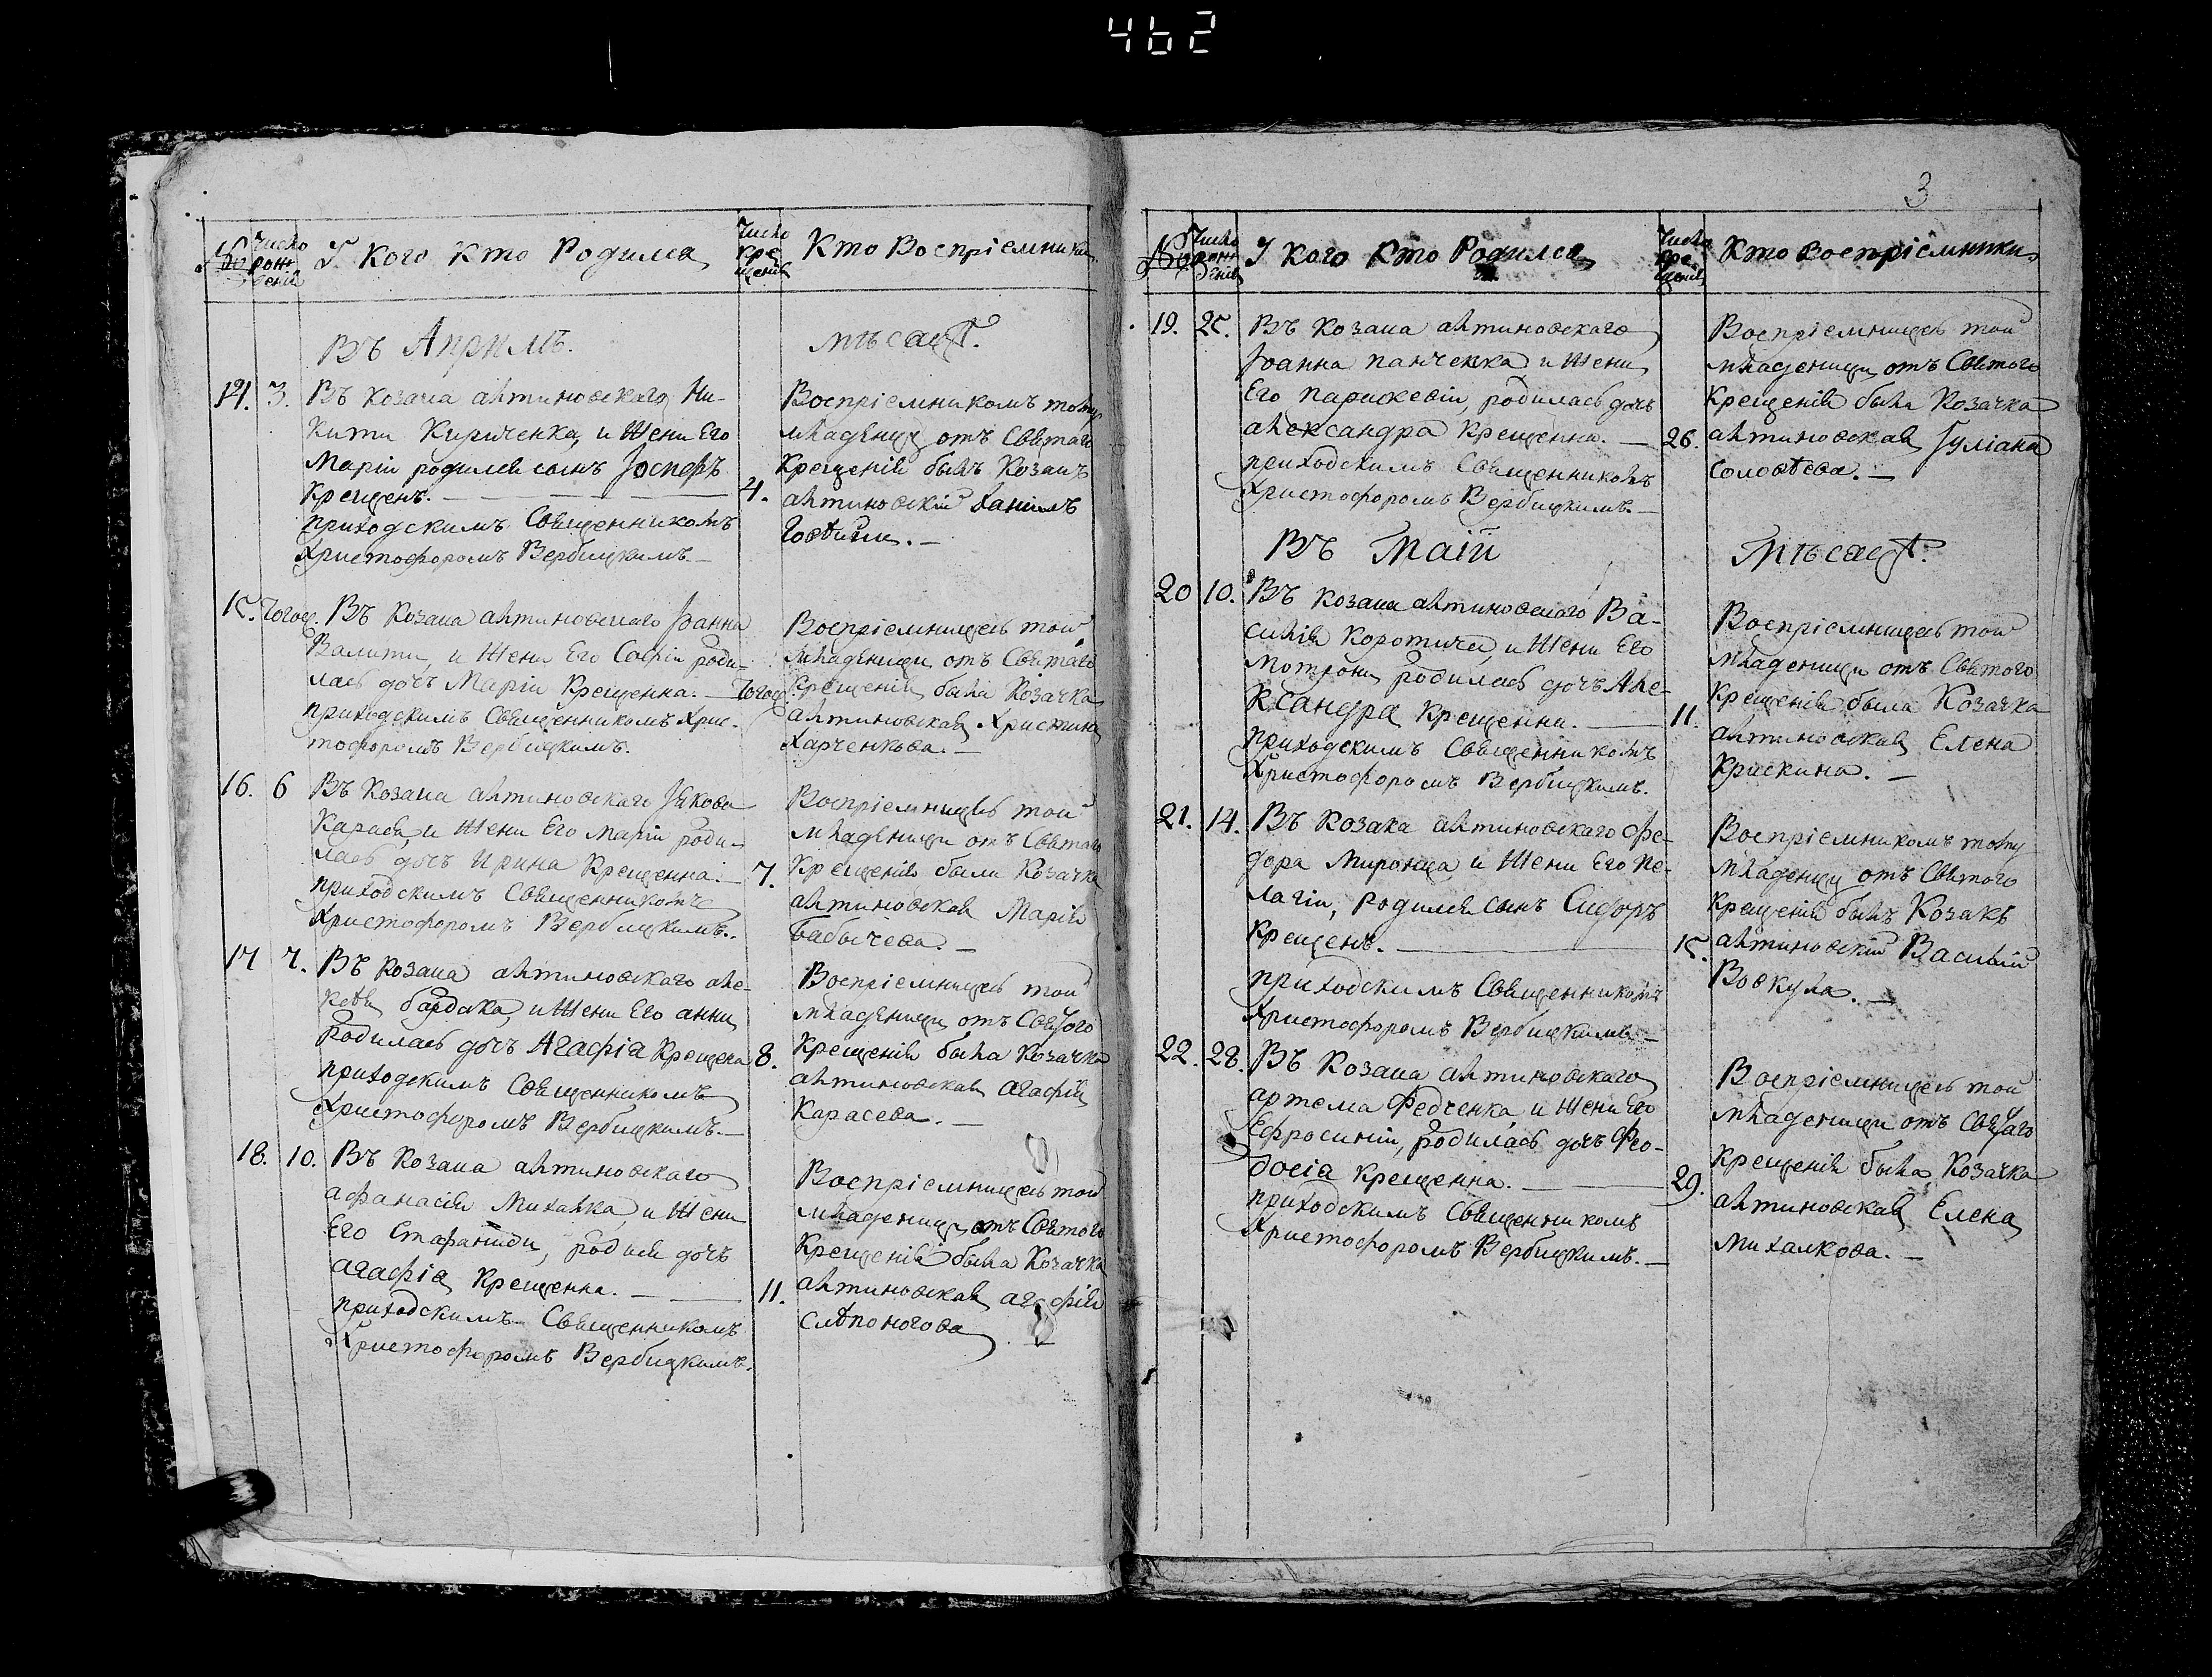 462
3
№
Число рож денія
У кого кто Родился
Число кре щенія
Кто Воспріемники
Въ Априлѣ.
мѣсацѣ.
14. 3. Въ козака алтиновскаго Ни-
кити Кириченка, и жени Его
Маріи родился сынъ Іосифъ
крещенъ. 4.
приходскимъ Священникомъ
Христофоромъ Вербицкимъ.
Воспріемникомъ тому
младенцу отъ Святаго
Крещенія былъ Козакъ
алтиновскій Даніилъ
15. Тогож. Въ Козака алтиновскаго Іоанна
Валити, и жени Его Софіи роди-
лась дочъ Марія Крещенна. Тогож.
приходскимъ Священникомъ Хрис-
тофоромъ Вербицкимъ.
Воспріемницею той
младеници отъ Святаго
Крещенія была Козачка
алтиновская Христина
Харченкова.
16. 6 Въ Козака алтиновскаго Якова
Карася, и жени Его Маріи роди-
лась дочъ Ирина Крещенна. 7.
приходскимъ Священникомъ
Христофоромъ Вербицкимъ.
Воспріемницею той
младеници отъ Святаго
Крещенія была Козачка
алтиновская Марія
Бабичева.
17 7. Въ козака алтиновскаго але-
ксѣя бардака, и жени Его анни
Родилась дочъ Агафія Крещена 8.
приходскимъ Священникомъ
Христофоромъ Вербицкимъ.
Воспріемницею той
младеници отъ Святого
Крещенія была козачка
алтиновская агафія
Карасева.
18. 10. Въ Козака алтиновскаго
афанасія Михалка, и жени
Его Стефаниди, родися дочъ
агафія Крещенна. 11.
приходскимъ Священникомъ
Христофоромъ Вербицкимъ.
Воспріемницею той
младеници отъ Святого
Крещенія была Козачка
алтиновская агафія
слѣпоногова
№
Число рож денія
У кого кто Родился
Число кре щенія
Кто воспріемники
19. 25. Въ козака алтиновскаго
Іоанна панченка и жени
Его парискевіи, родилась дочъ
александра крещенна. 26.
приходскимъ Священникомъ
Христофоромъ Вербицкимъ.
Воспріемницею той
младеници отъ Святого
Крещенія была Козачка
алтиновская Іуліана
соловѣева.
Въ Маіи
Мѣсацѣ.
20 10. Въ козака алтиновскаго Ва-
силія Коротича, и жени Его
Мотрони родилась дочъ Але-
ксандра крещенна. 11.
приходскимъ Священникомъ
Христофоромъ Вербицкимъ.
Воспріемницею той
младеници отъ Святого
Крещенія была Козачка
алтиновская Елена
Крискина.
21. 14. Въ Козака алтиновскаго Фе-
дора Миронца и жени Его Пе-
лагіи, родился сынъ Сидоръ
крещенъ. 15.
приходскимъ Священникомъ
Христофоромъ Вербицкимъ
Воспріемникомъ тому
младенцу отъ Святого
крещенія былъ Козакъ
алтиновскій Василій
Вовкула.
22. 28. Въ Козака алтиновскаго
артема Федченка, и жени Его
Ефросиніи, родилась дочъ Фео-
досіа крещенна. 29.
приходскимъ Священникомъ
Христофоромъ Вербицкимъ.
Воспріемницею той
младеници отъ Святаго
крещенія была Козачка
алтиновская Елена
Михалкова.